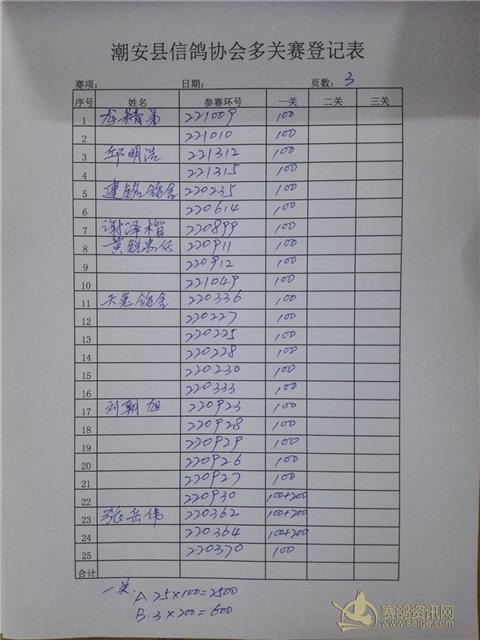 潮安县信鸽协会多关赛登记表
赛项: 日期: 页数: 3
序号 姓名 参赛环号 一关 二关 三关
1 221009 100
2 221010 100
3 邱明浩 221312 100
4 221315 100
5 建铭鸽舍 220235 100
6 220614 100
7 谢泽楷 220899 100
8 黄锐 220911 100
9 220912 100
10 221049 100
11 鸽舍 220336 100
12 220227 100
13 220225 100
14 220228 100
15 220230 100
16 220333 100
17 刘朝旭 220923 100
18 220928 100
19 220929 100
20 220926 100
21 220927 100
22 220930 100+200
23 张岳伟 220362 100+200
24 220364 100+200
25 220370 100
合计
一关. A. 25×100=2500
B. 3×200=600
赛鸽资讯网
www.saige.com